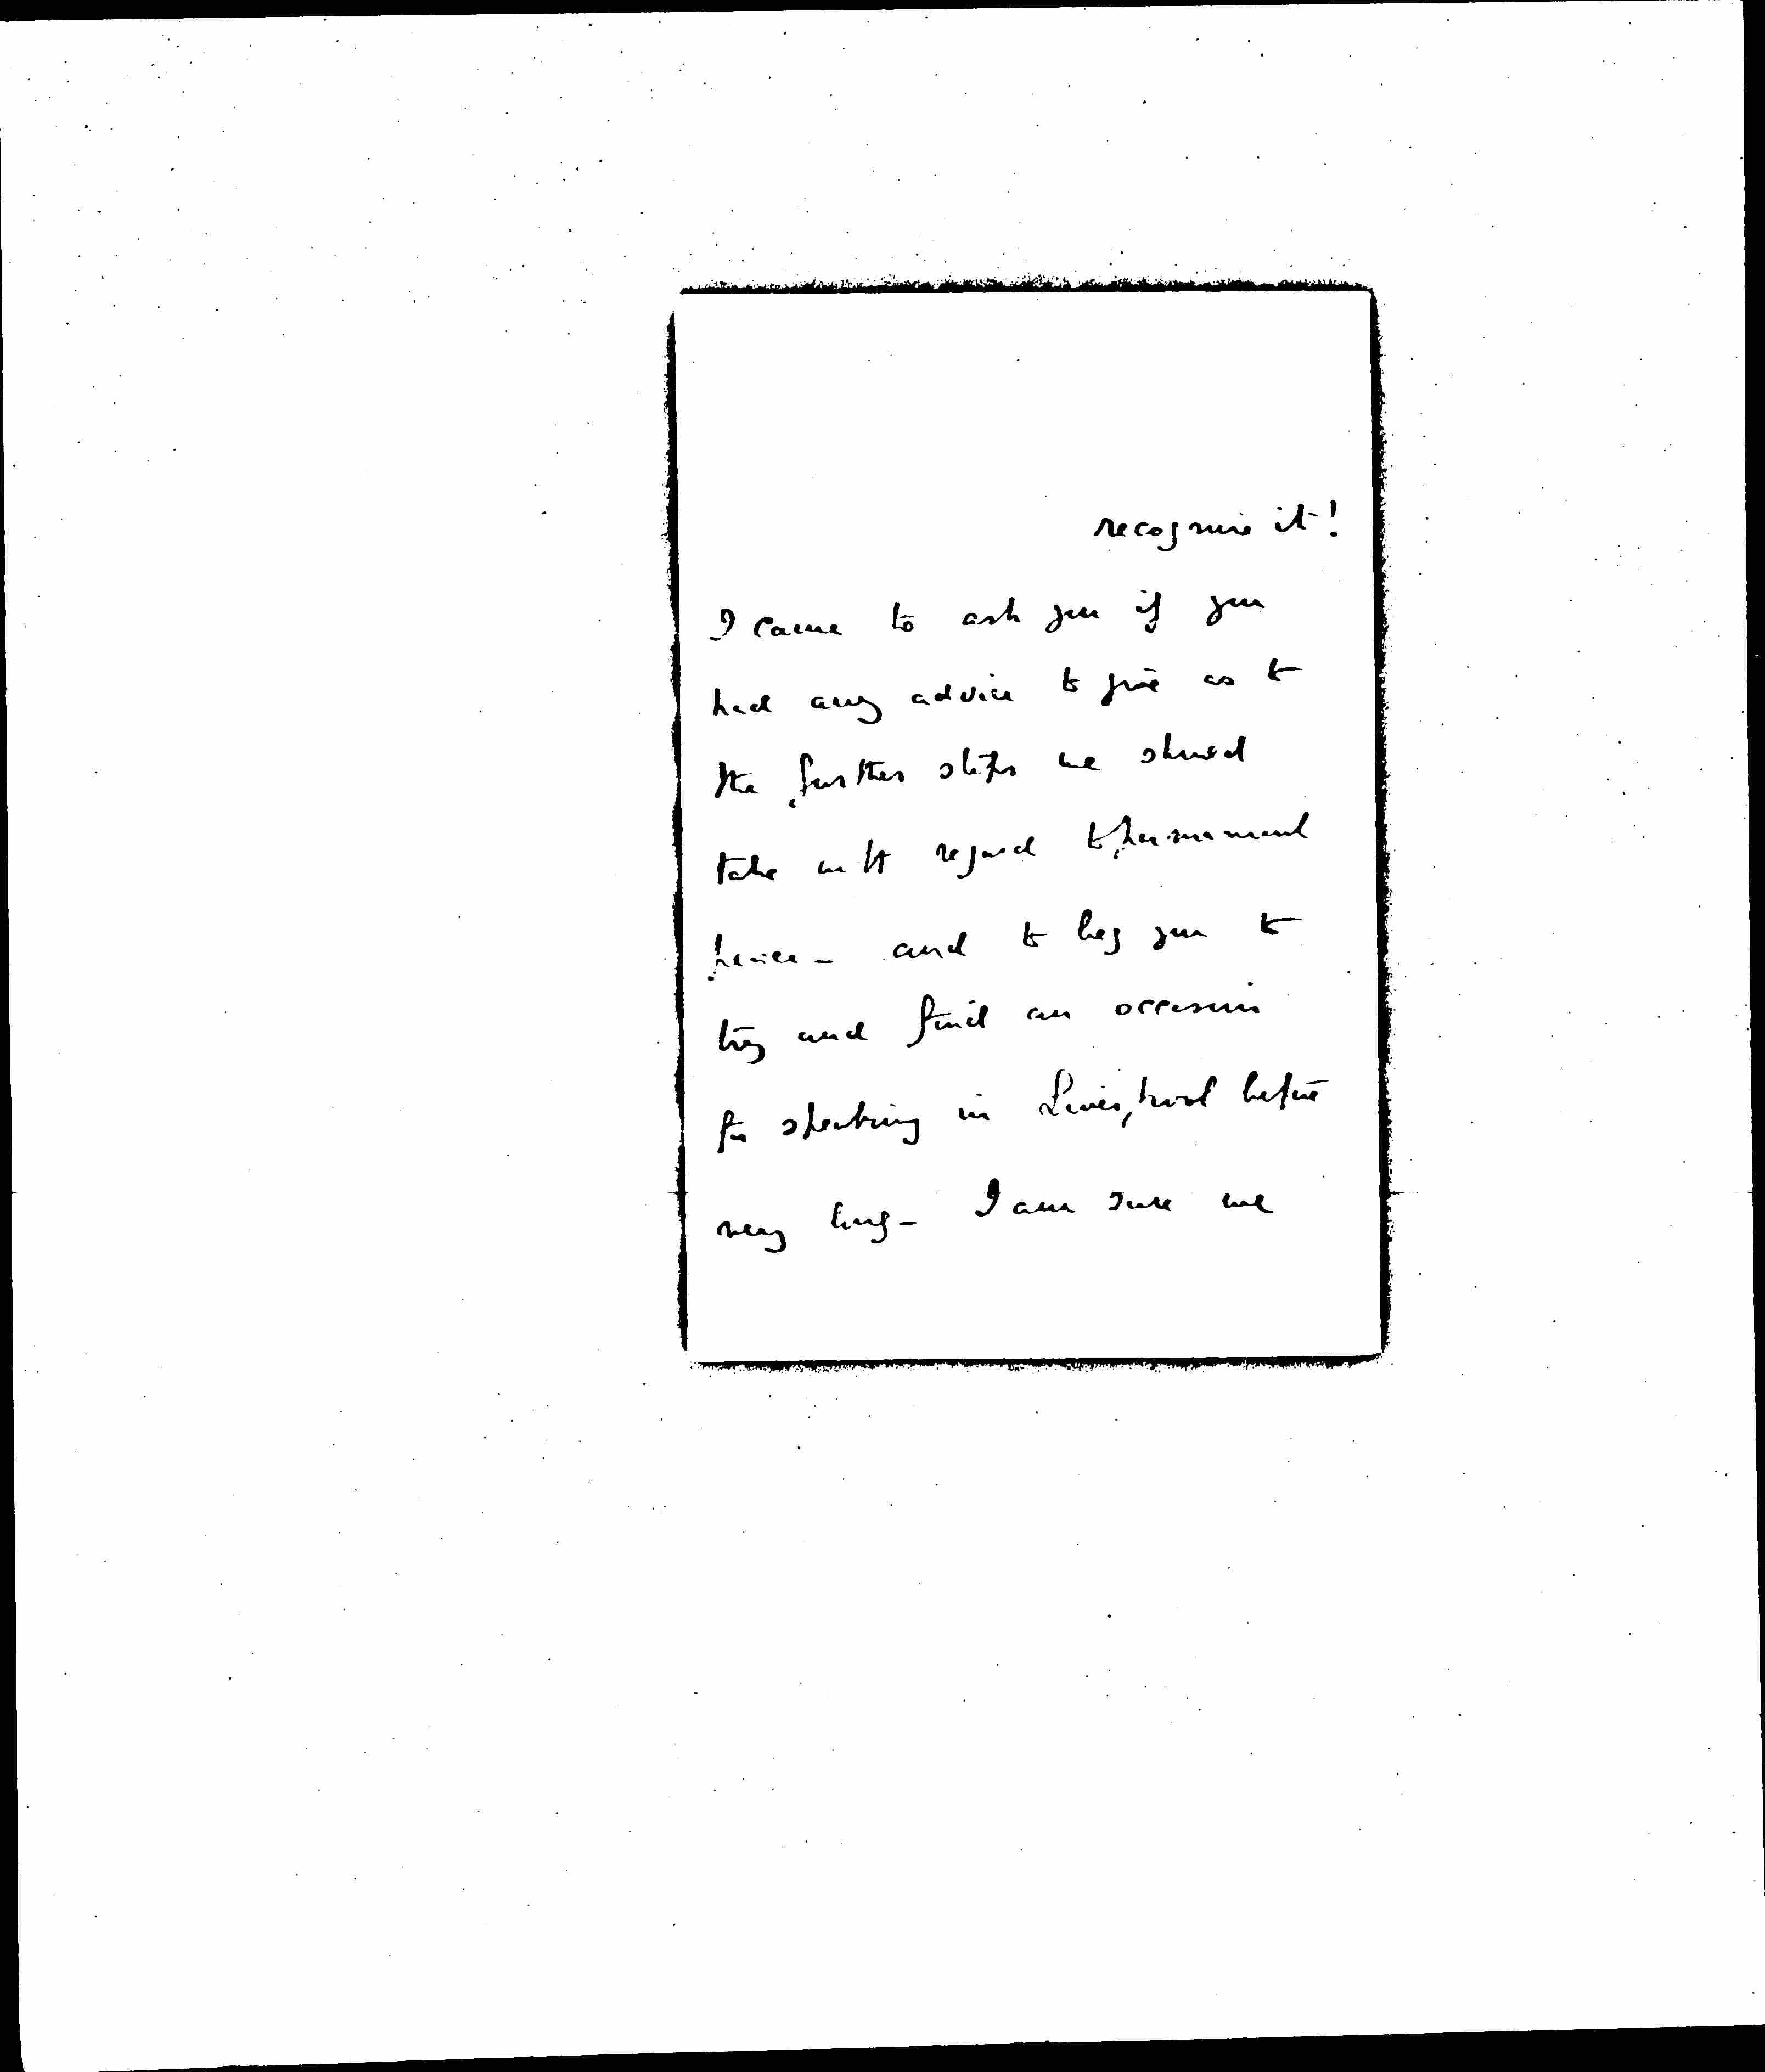 recognise it!
I came to ask you if you
had any advice to give as to
the further steps we should
take with regard to permanent
peace - and to beg you to
try and find an occasion
for speaking in Liverpool before
very long - I am sure we